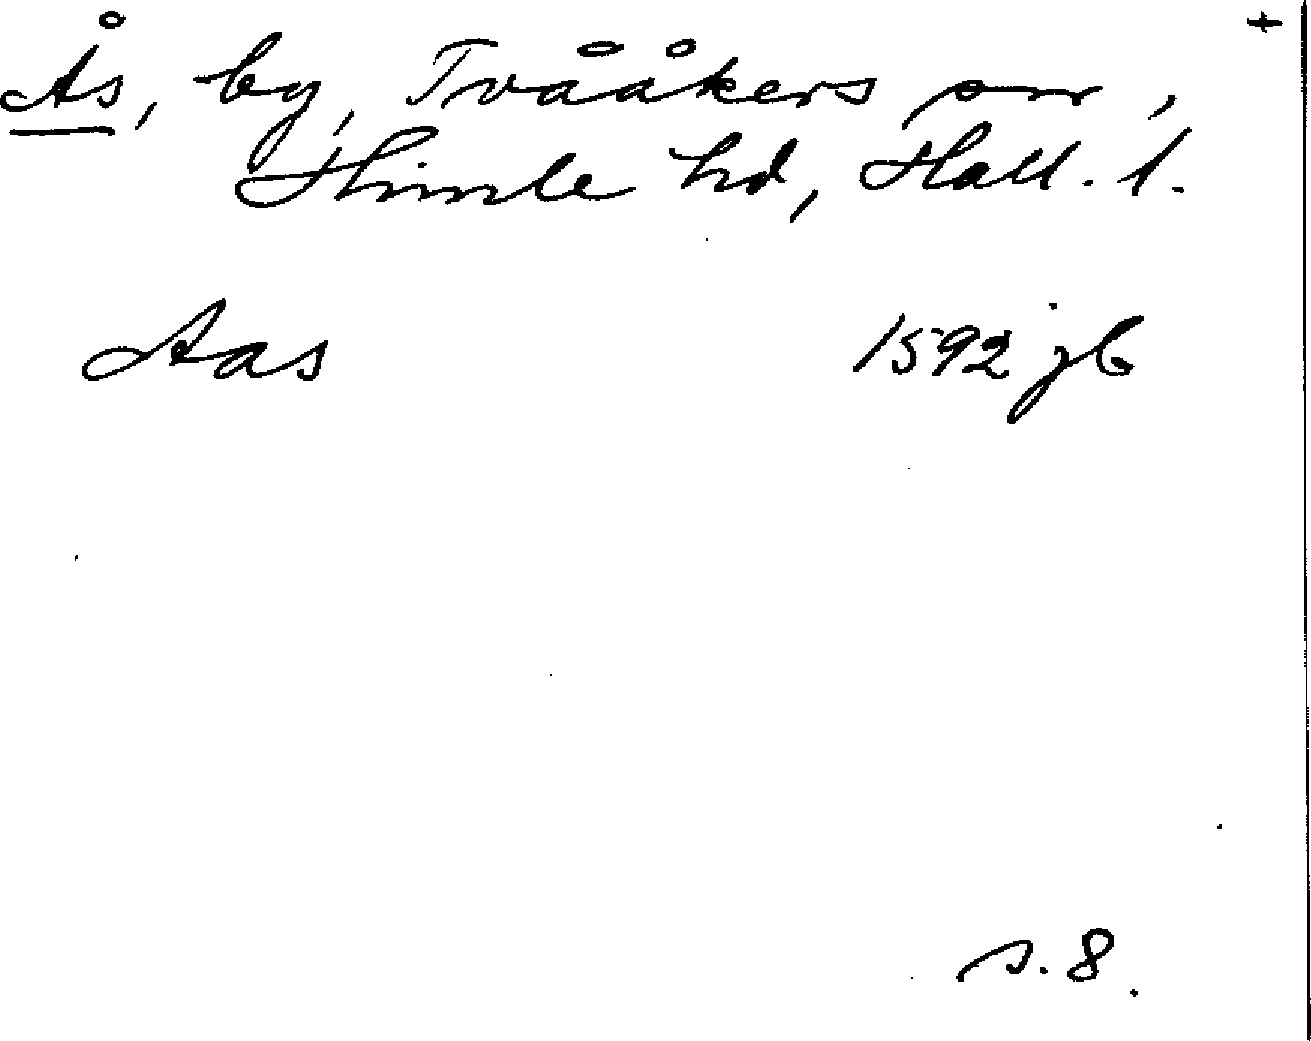 +
Ås, by, Tvååkers sn,
Himle hd, Hall. l.
Aas 1592 jb
s. 8.